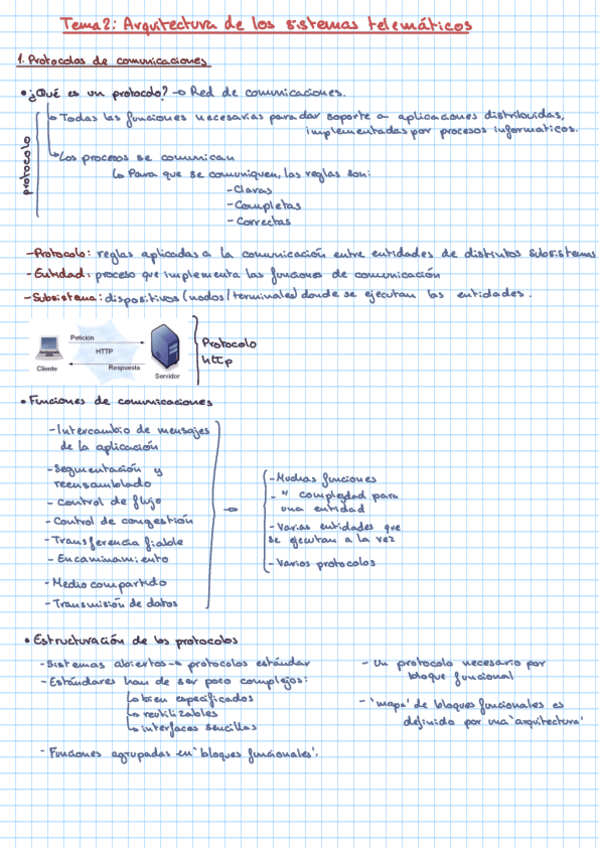 Tema 2: Arquitectura de los sistemas telemáticos
1. Protocolos de comunicaciones
• ¿Qué es un protocolo? → Red de comunicaciones.
protocolo
↳ Todas las funciones necesarias para dar soporte a aplicaciones distribuidas,
implementadas por procesos informaticos.
↳ Los procesos se comunican
↳ Para que se comuniquen, las reglas son:
- Claras
- Completas
- Correctas
- Protocolo: reglas aplicadas a la comunicación entre entidades de distintos subsistemas
- Entidad: proceso que implementa las funciones de comunicación
- Subsistema: dispositivos (nodos/terminales) donde se ejecutan las entidades.
Petición
HTTP
Respuesta
Cliente
Servidor
Protocolo
http
• Funciones de comunicaciones
- Intercambio de mensajes
de la aplicación
- Segmentación y
reensamblado
- Control de flujo
- Control de congestión
- Transferencia fiable
- Encaminamiento
- Medio compartido
- Transmisión de datos
→
- Muchas funciones
- " complejidad para
una entidad
- Varias entidades que
se ejecutan a la vez
- Varios protocolos
• Estructuración de los protocolos
- Sistemas abiertos → protocolos estándar
- Estándares han de ser poco complejos:
↳ bien especificados
↳ reutilizables
↳ interfaces sencillas
- Funciones agrupadas en 'bloques funcionales'.
- Un protocolo necesario por
bloque funcional
- 'mapa' de bloques funcionales es
definido por una 'arquitectura'